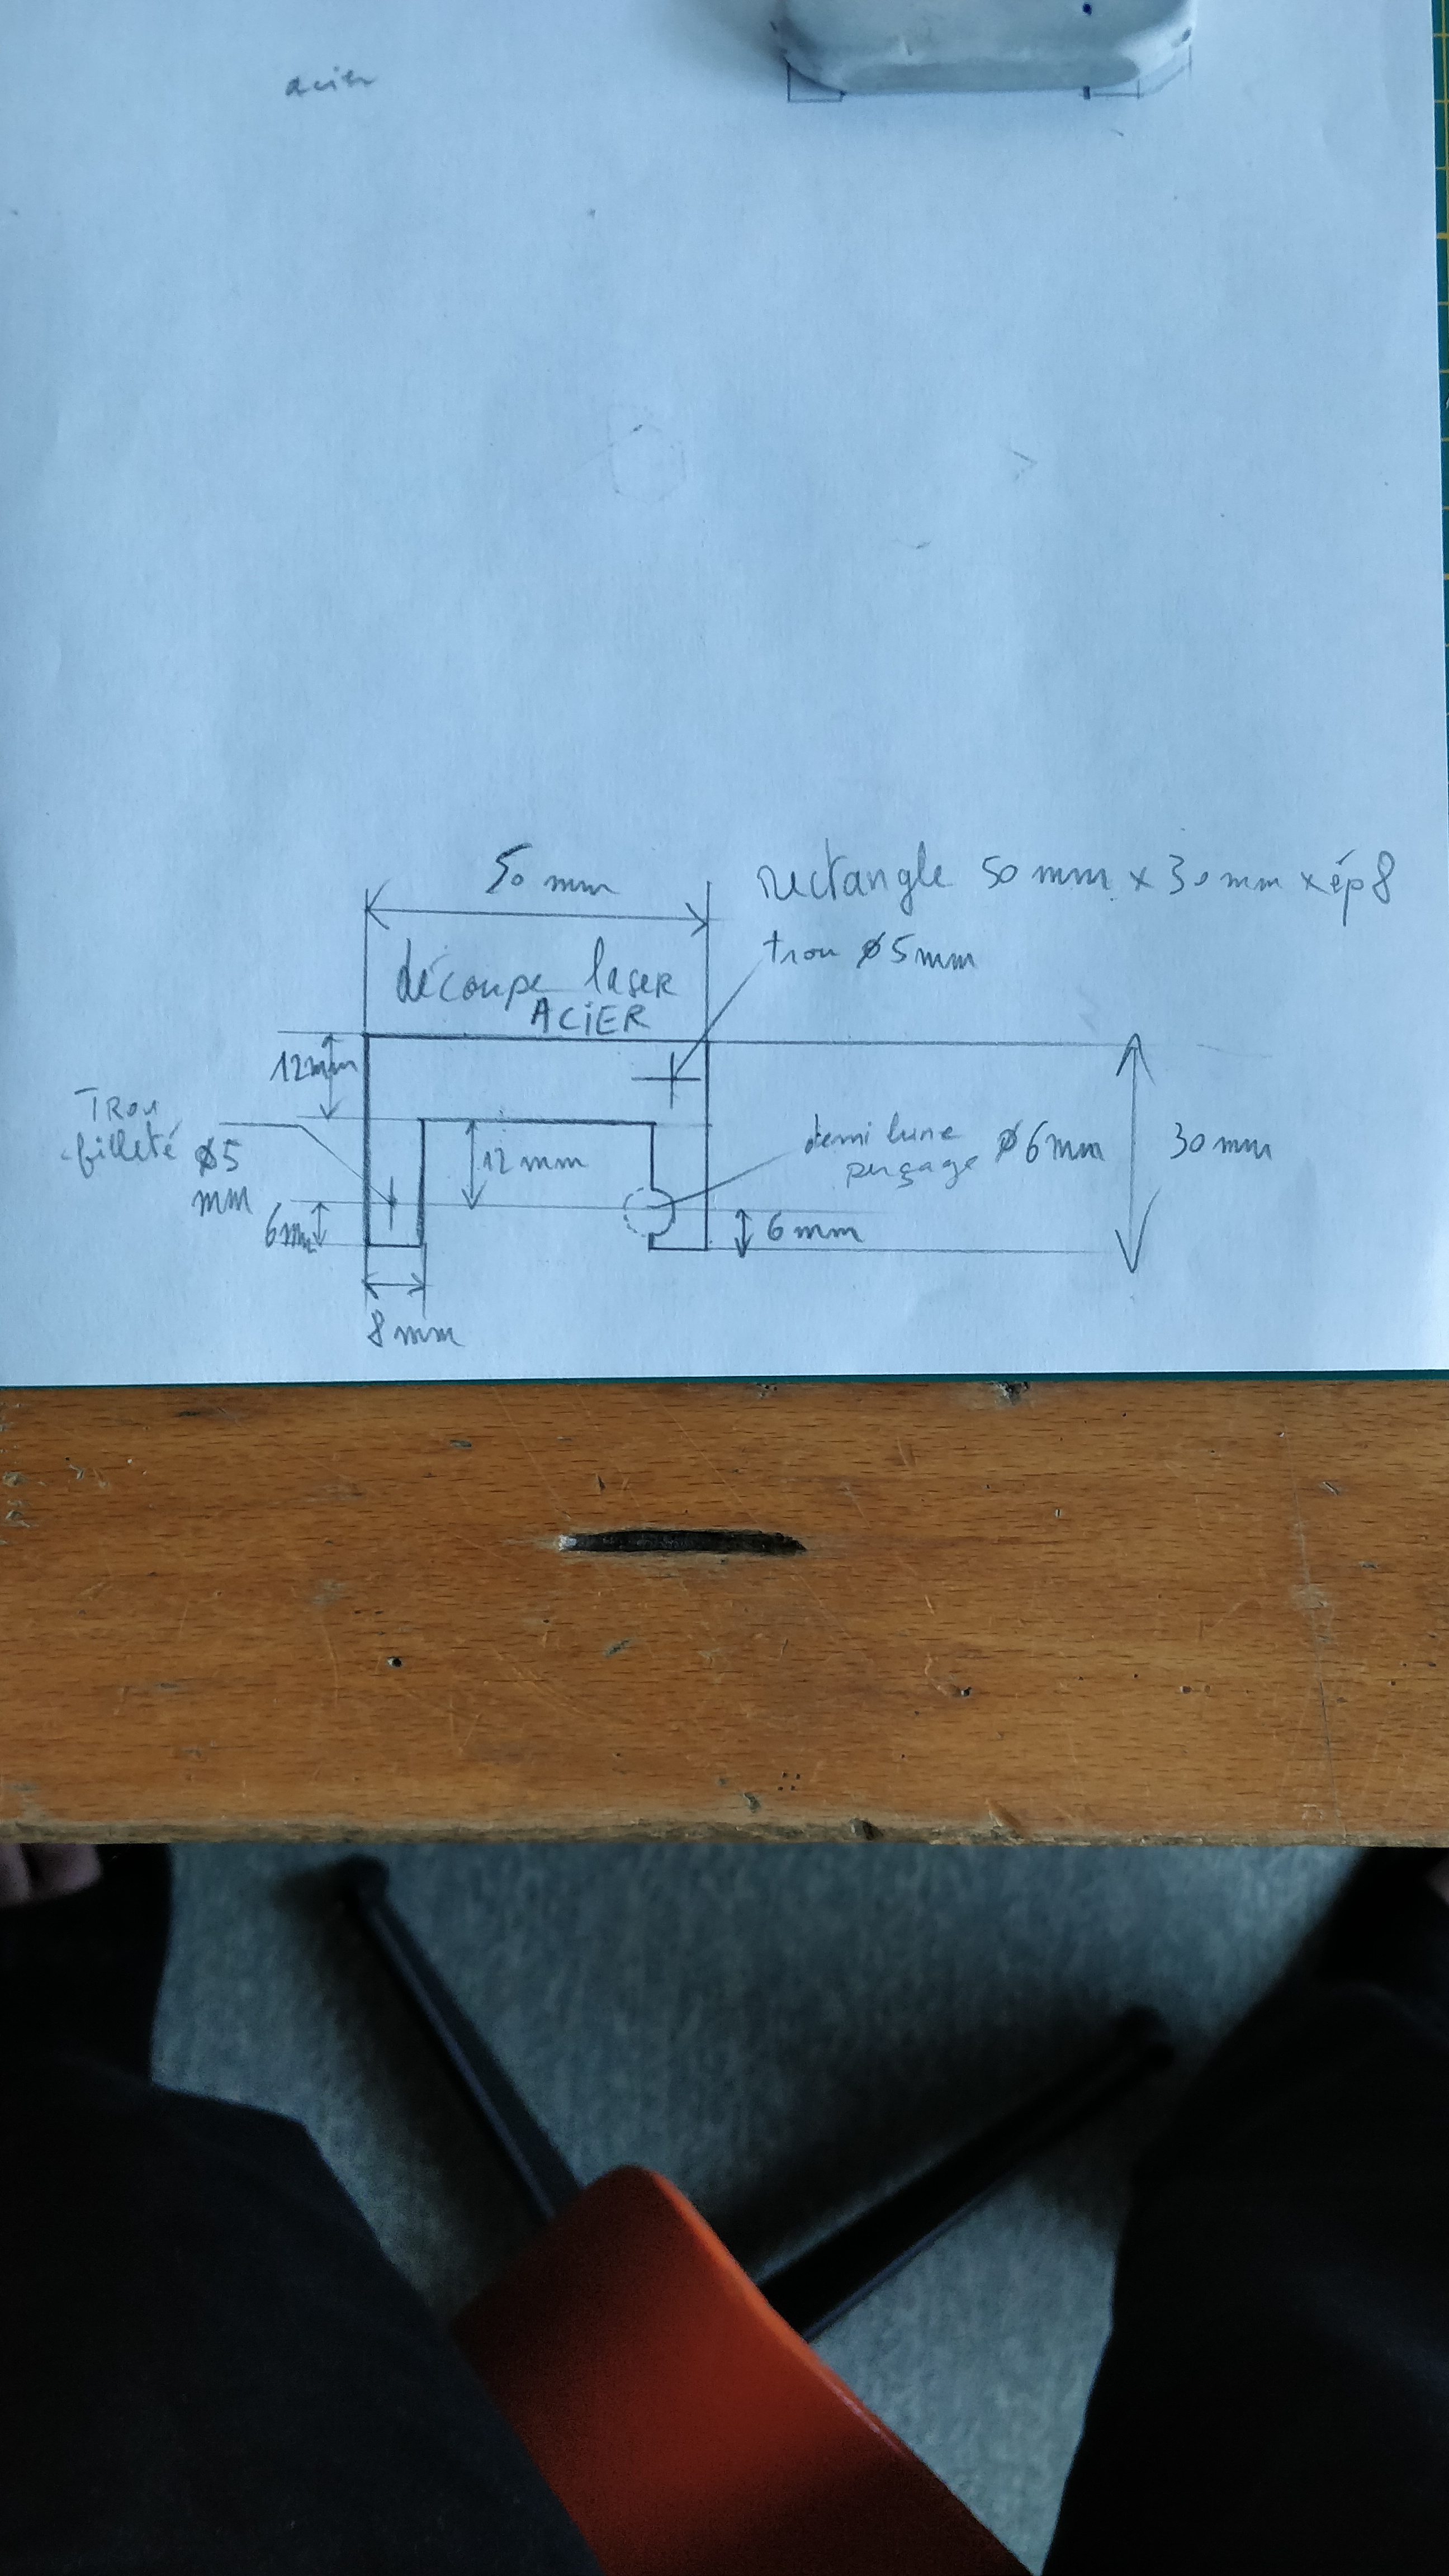 acier
50 mm
rectangle 50 mm x 30 mm x ép 8
trou Ø 5 mm
découpe laser
ACIER
12 mm
TROU
fileté Ø5
mm
12 mm
demi lune Ø 6 mm
perçage
30 mm
6 mm
6 mm
8 mm